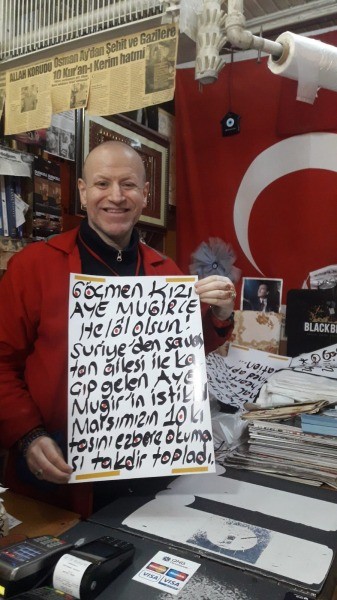 Osman Ay'dan Şehit ve Gazilere
ALLAH KORUDU 10 Kur'an-ı Kerim hatmi
Göçmen KIZI
AYE MUGİR'E
Helâl olsun!
Suriye'den savaş
tan ailesi ile ka
çıp gelen AYE
Mugir'in istiklâl
Marşımızın 10 kı
tasını ezbere okuma
sı takdir topladı.
BLACK
VISA VISA